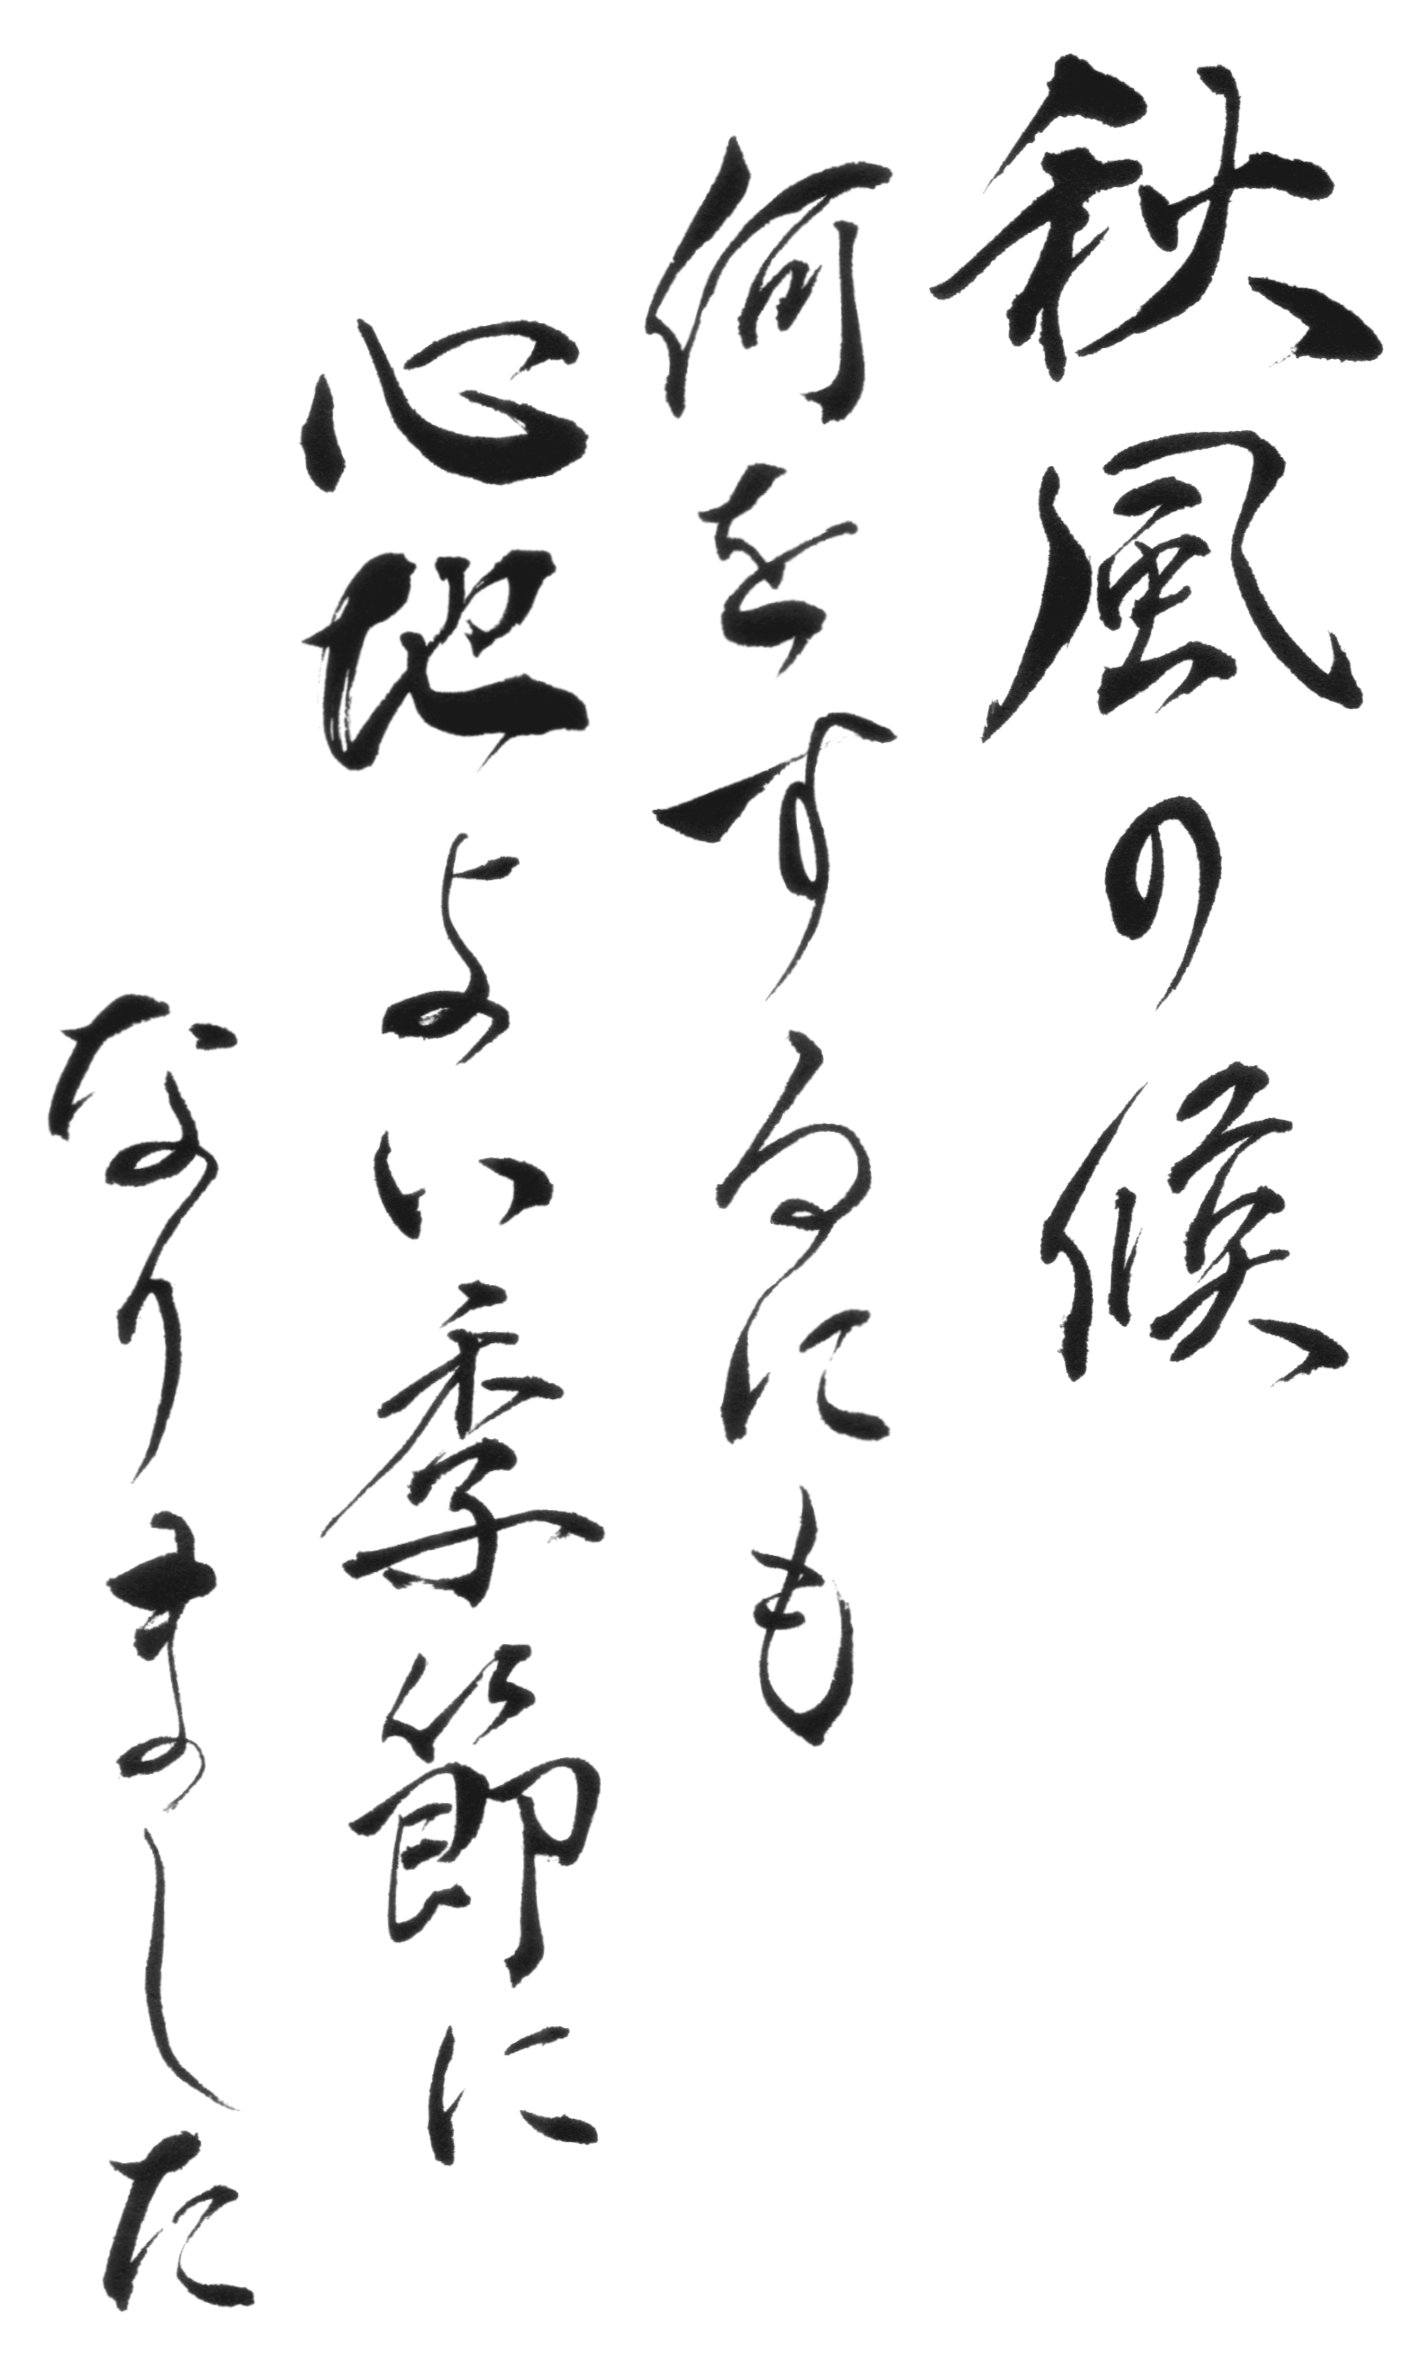 秋風の候
何をするにも
心地よい季節に
なりました